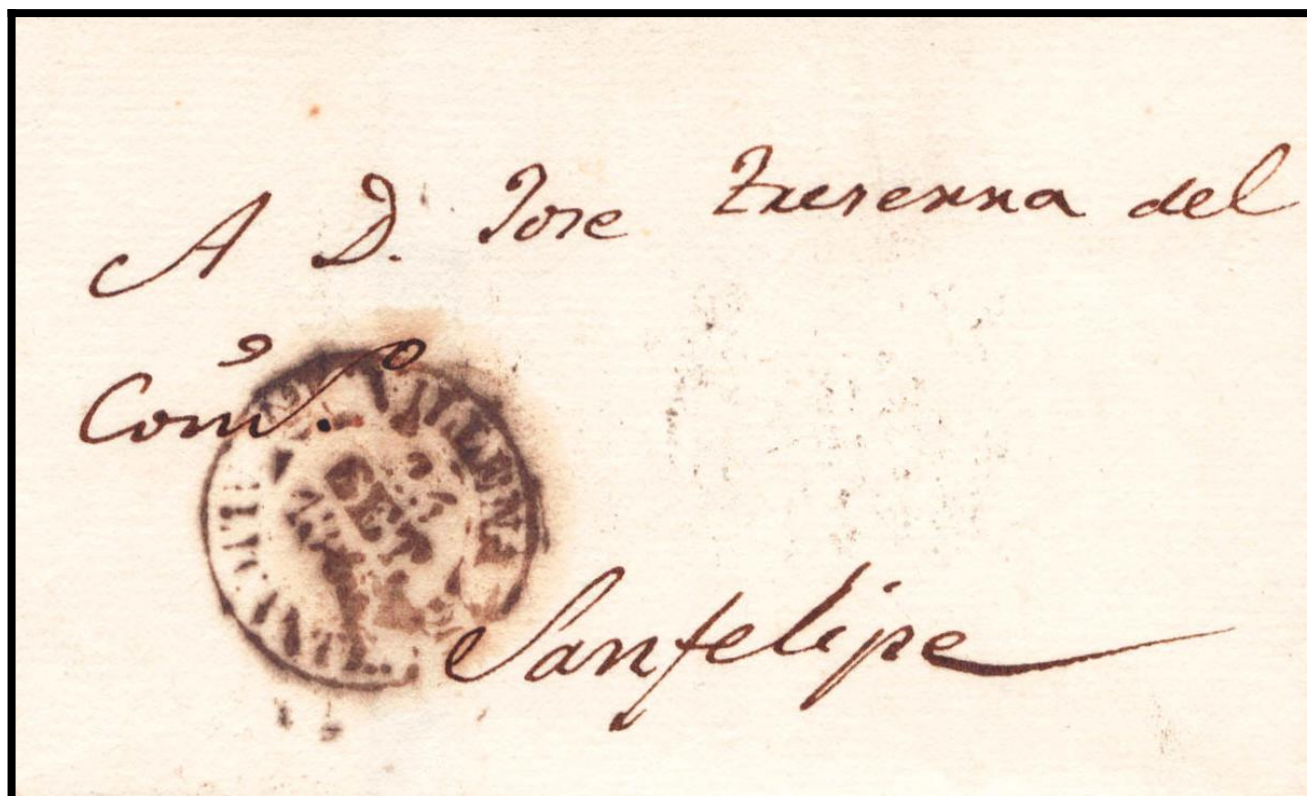 A D. Jose Treserra del
Com.º
VILLENA
Sanfelipe